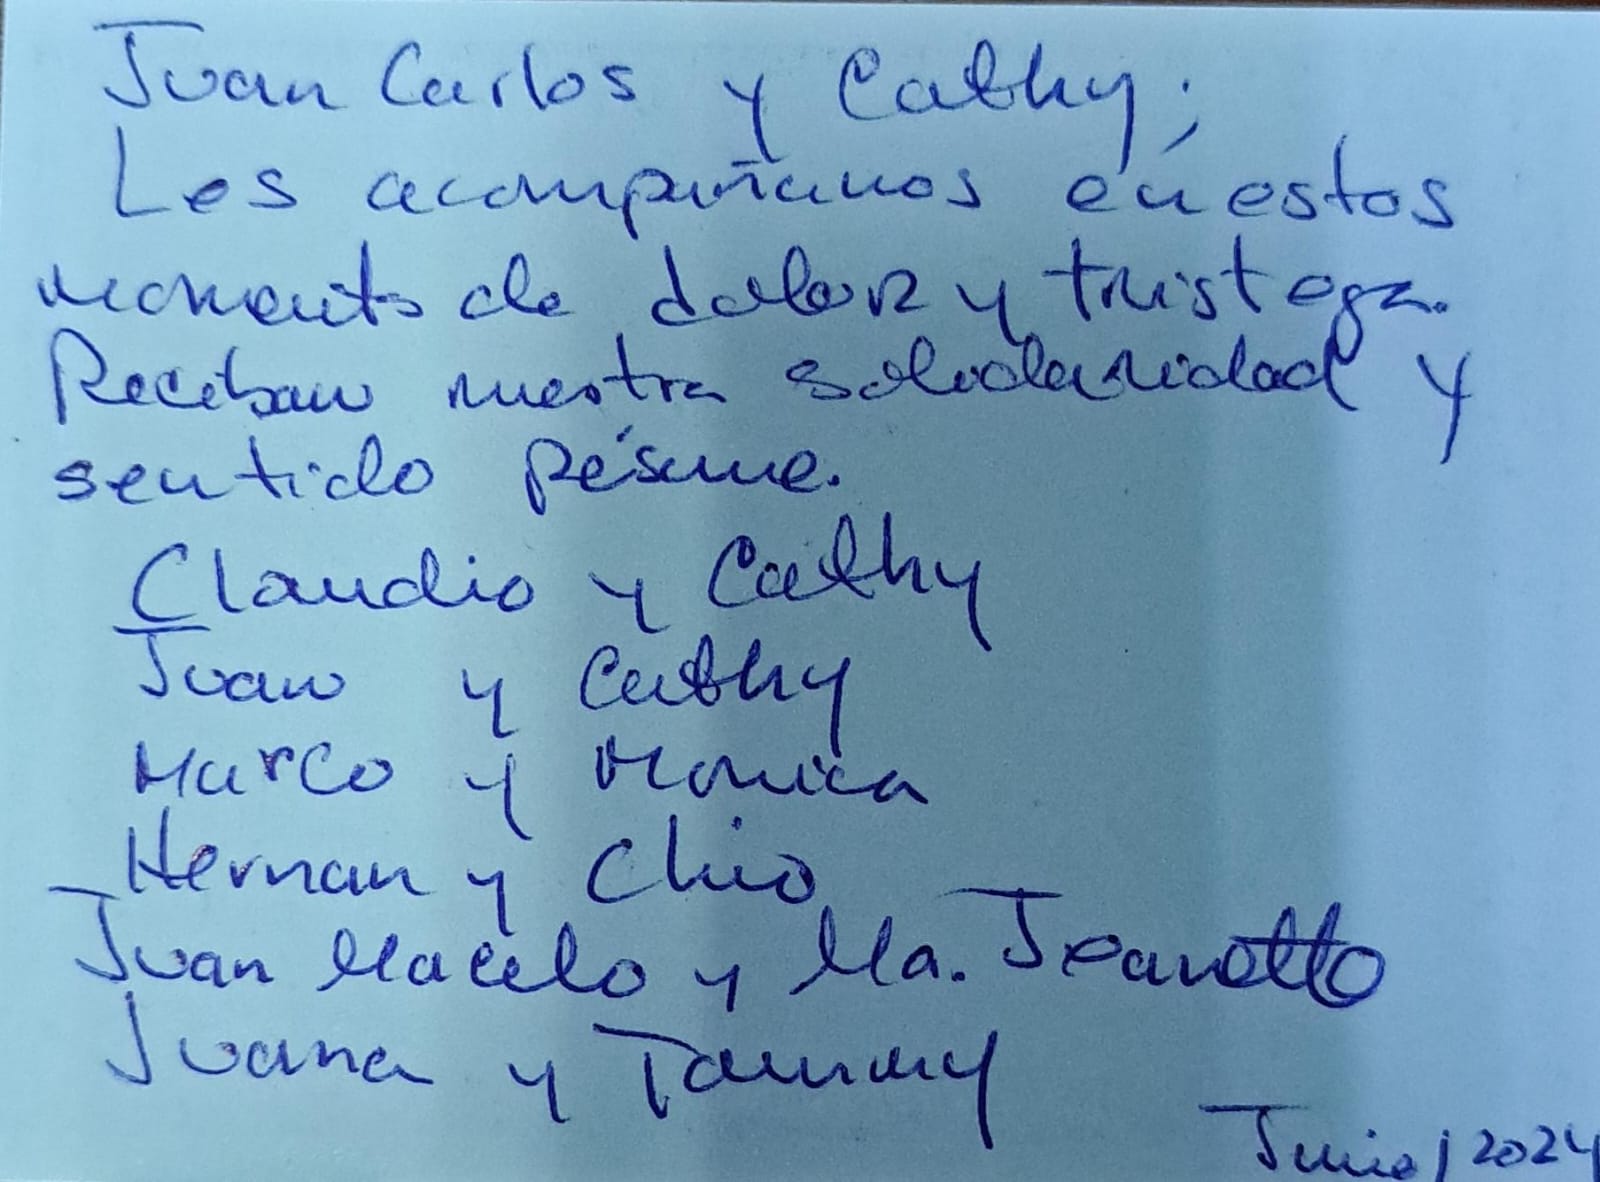 Juan Carlos y Cathy;
Les acompañamos en estos
momentos de dolor y tristeza.
Reciban nuestra solidaridad y
sentido pésame.
Claudio y Cathy
Juan y Cathy
Marco y Monica
Hernan y Chio
Juan Macelo y Ma. Jeanette
Juana y Tammy
Junio/2024